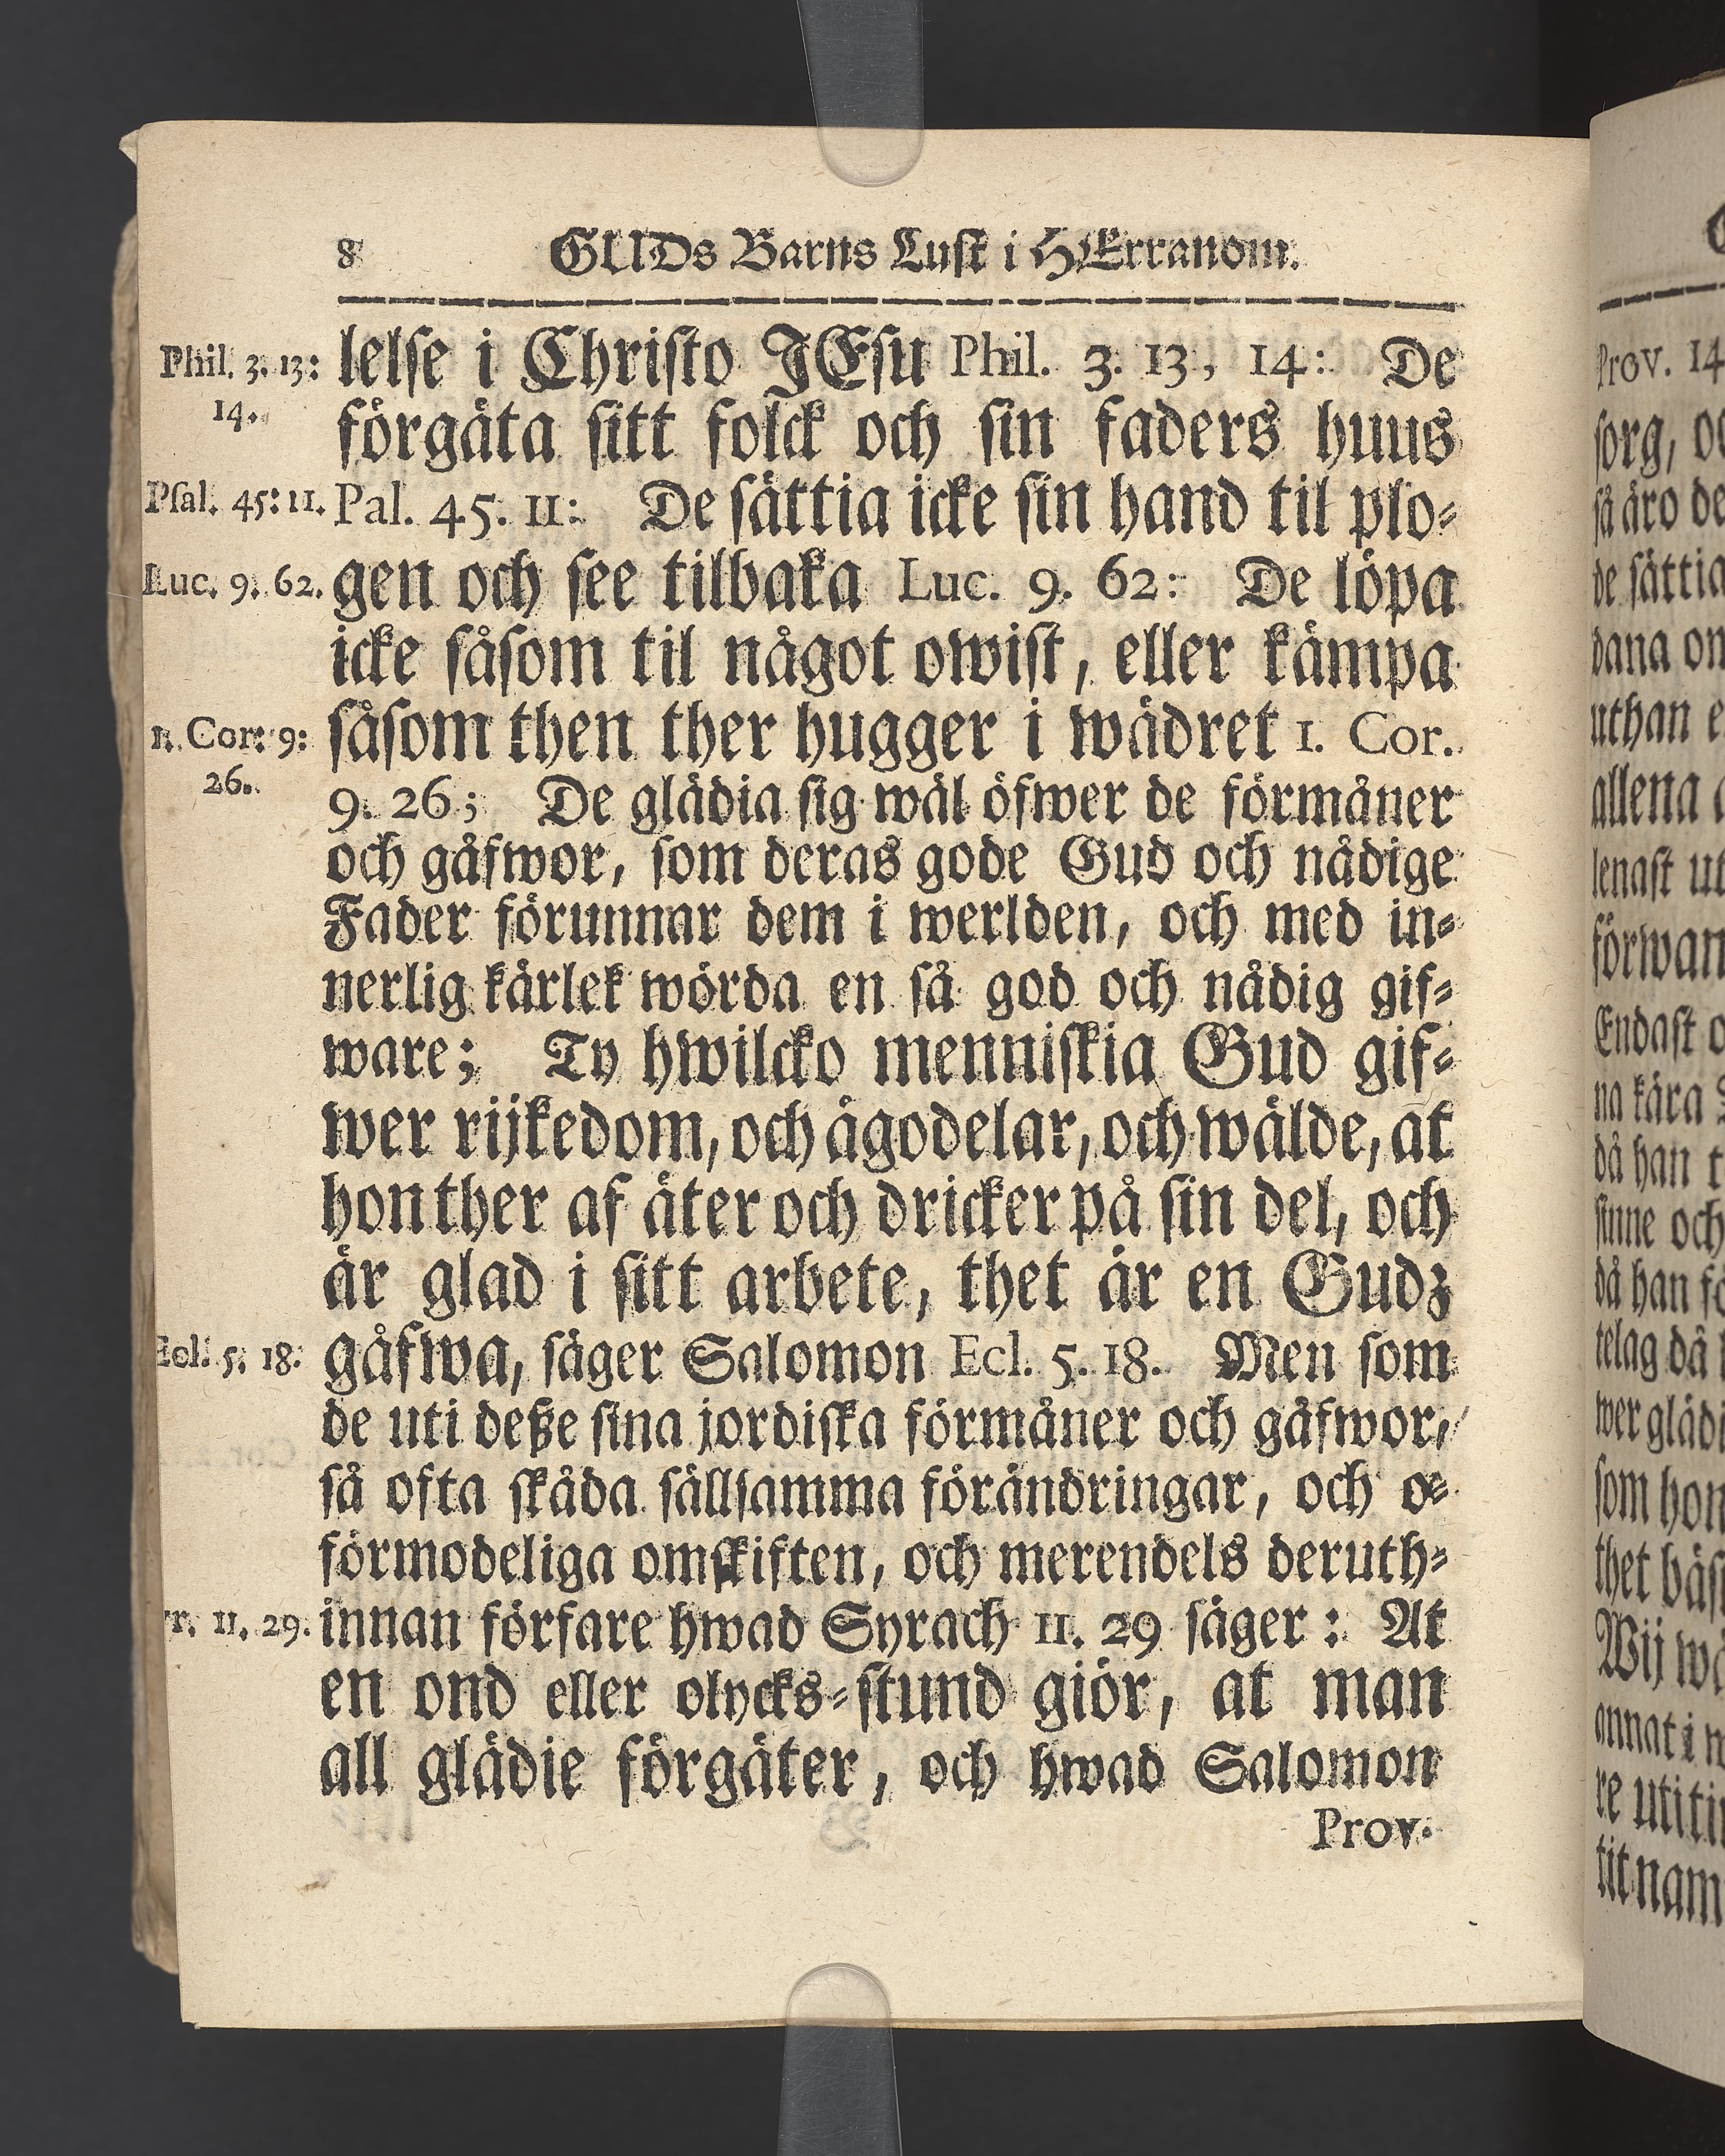 8 GUDs Barns Lust i HErranom.
Phil. 3. 13: 14.
lelse i Christo JEsu Phil. 3. 13, 14: De
förgäta sitt folck och sin faders huus
Psal. 45: 11.
Pal. 45. 11: De sättia icke sin hand til plo-
Luc. 9. 62.
gen och see tilbaka Luc. 9. 62: De löpa
icke såsom til något owist, eller kämpa
1. Cor. 9: 26.
såsom then ther hugger i wädret 1. Cor.
9. 26; De glädia sig wäl öfwer de förmåner
och gåfwor, som deras gode Gud och nådige
Fader förunnar dem i werlden, och med in-
nerlig kärlek wörda en så god och nådig gif-
ware; Ty hwilcko menniskia Gud gif-
wer rijkedom, och ägodelar, och wälde, at
hon ther af äter och dricker på sin del, och
är glad i sitt arbete, thet är en Gudz
Ecl. 5. 18.
gåfwa, säger Salomon Ecl. 5. 18. Men som
de uti deße sina jordiska förmåner och gåfwor,
så ofta skåda sällsamma förändringar, och o-
förmodeliga omskiften, och merendels deruth-
r. 11. 29.
innan förfare hwad Syrach 11. 29 säger: At
en ond eller olycks-stund giör, at man
all glädie förgäter, och hwad Salomon
Prov.
Prov. 14
sorg, o
så äro de
de sättia
dana on
uthan e
allena
lenast ut
förwan
Endast o
na kära
då han t
sinne och
då han fö
telag då
wer glädi
som hon
thet bäs
Wij wå
annat i w
re uti tin
tit nam